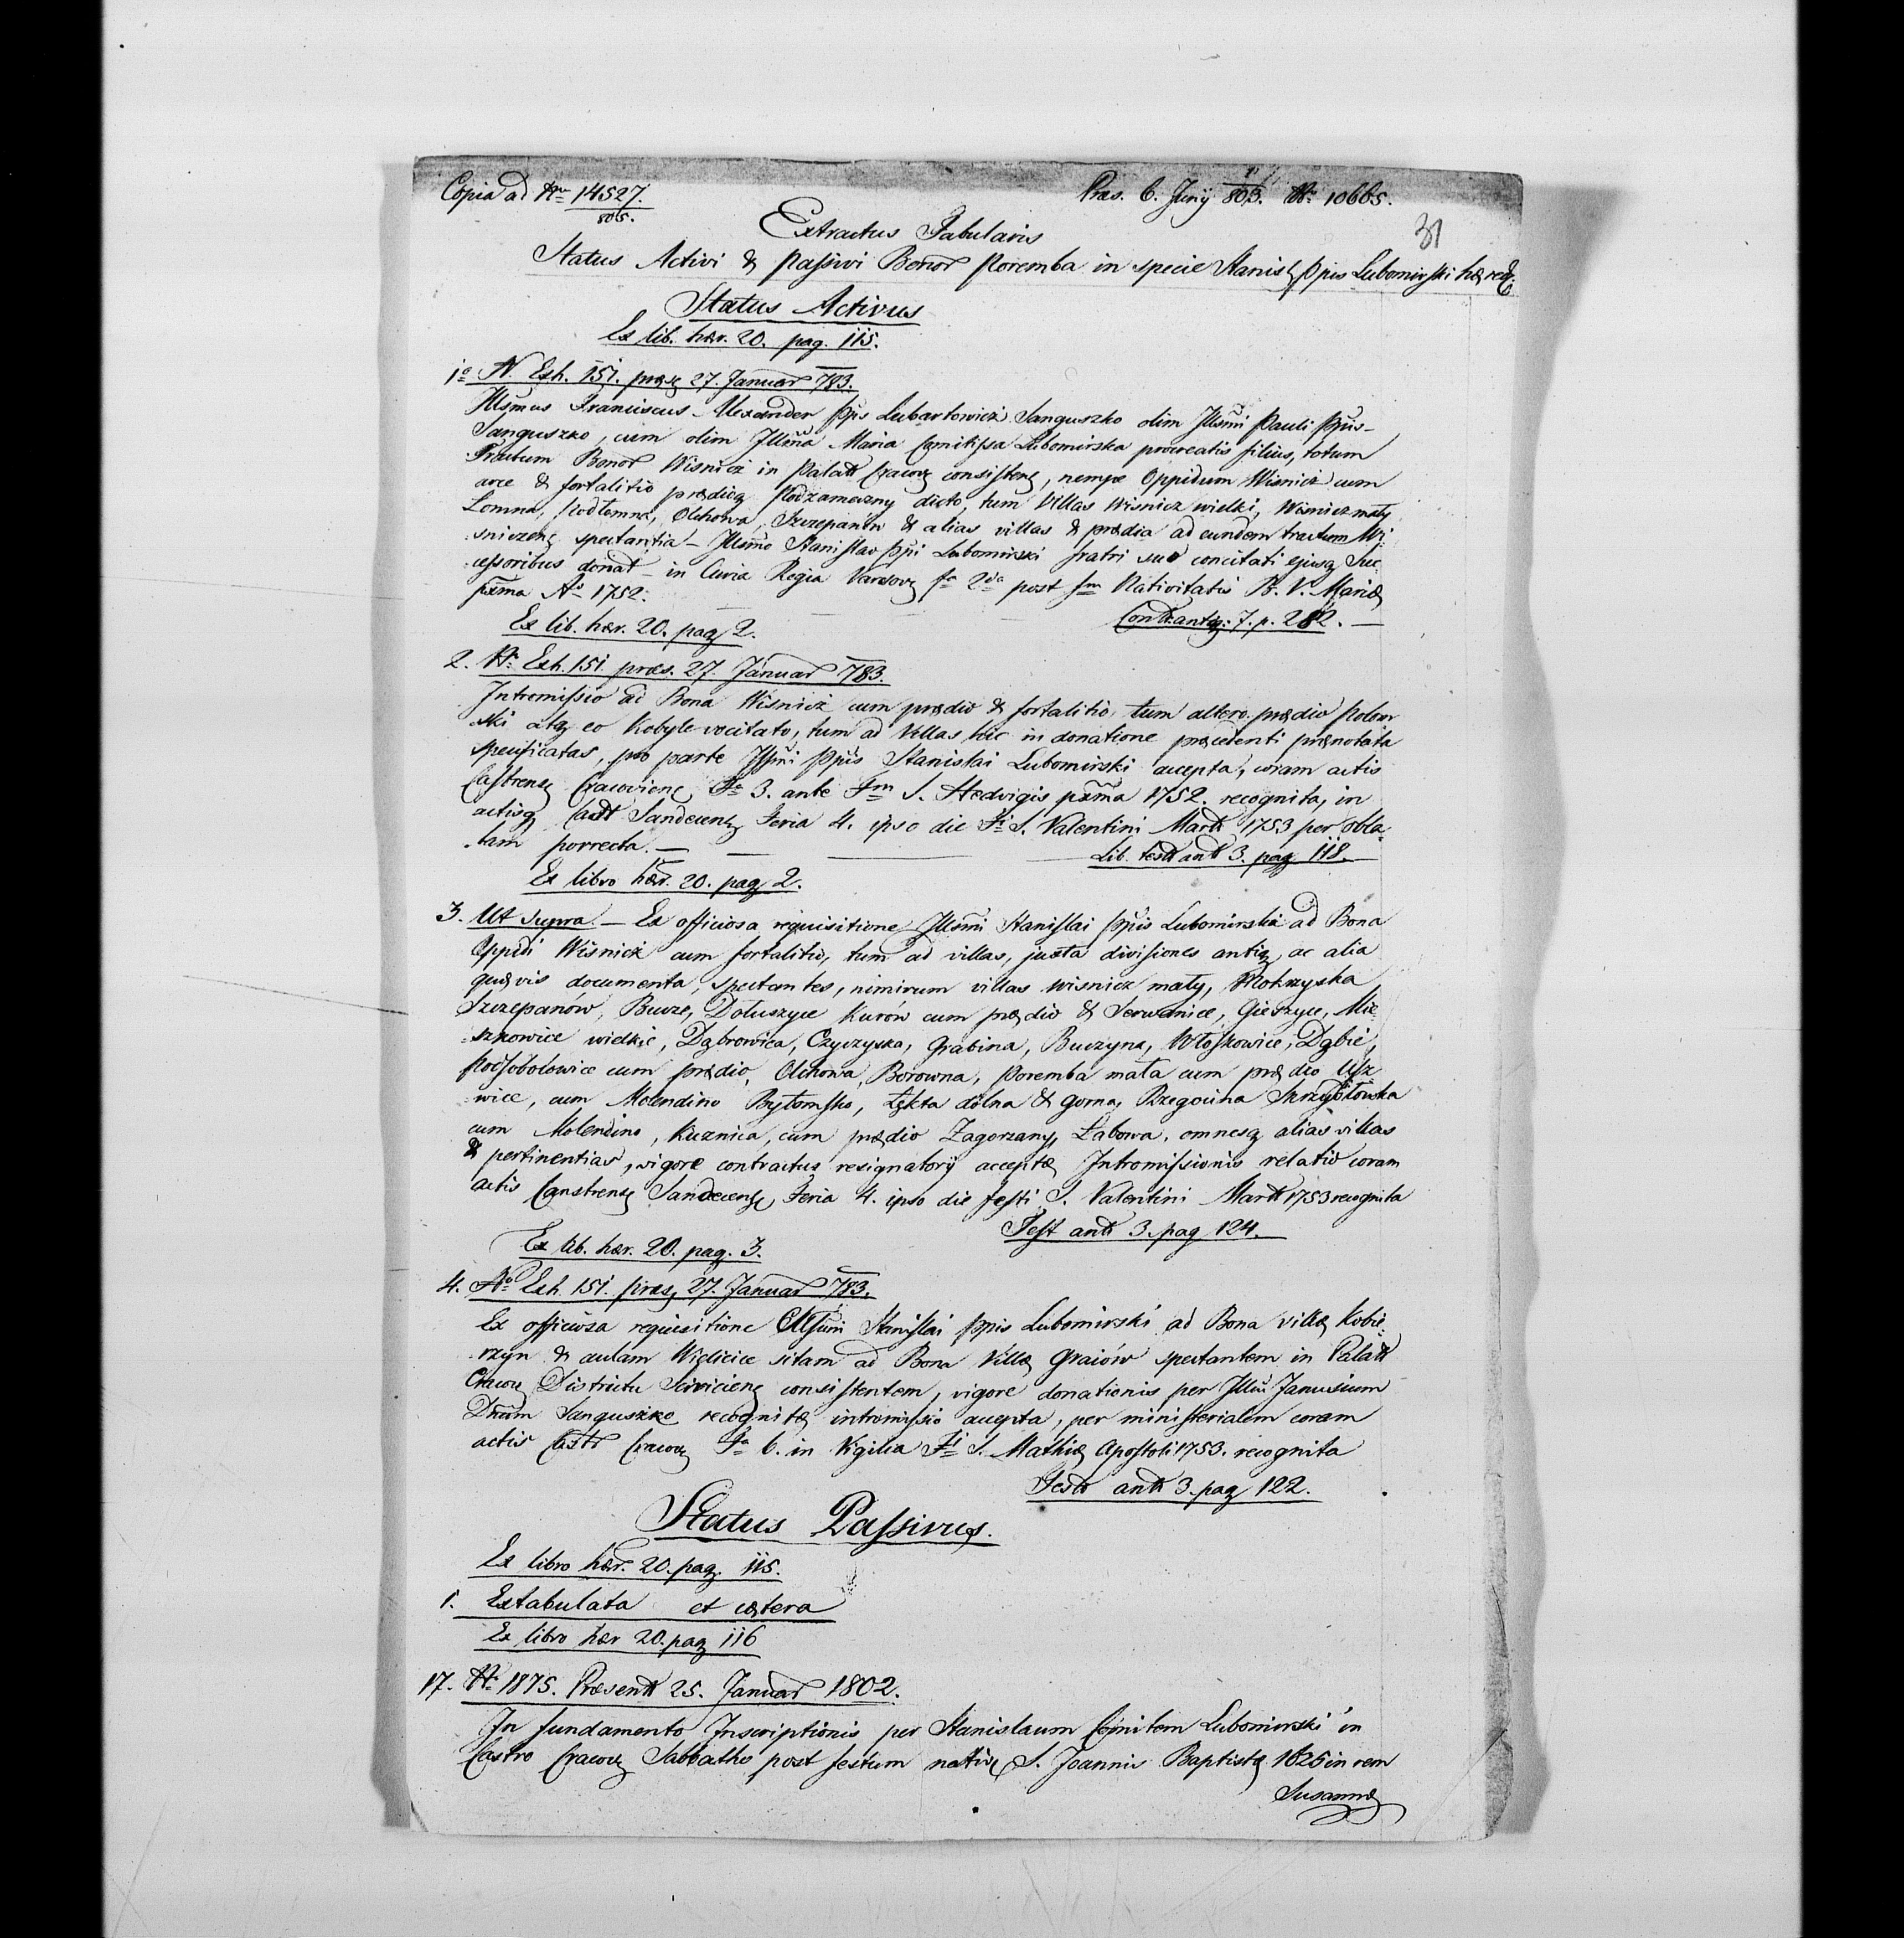 Copia ad Nrm 14527.
805.
Præs. 6. Junÿ 803. Nr. 10665.
31
Extractus Tabularis
Status Activi & passivi Bonor Poremba in specie Stanisl. Ppis Lubomirski hæred.
Status Activus
Ex lib. hær. 20. pag. 115.
1o N. Exh. 151. præs. 27. Januar 783.
Illsmus Franciscus Alexander Ppis Lubartowicz Sanguszko olim Illsmi Pauli Ppis
Sanguszko, cum olim Illma Maria Comitissa Lubomirska procreatis filius, totum
Tractum Bonor Wisnicz in Palatt Cracov consistens, nempe Oppidum Wisnicz cum
arce & fortalitio prædioq Podzameczny dicto, tum Villas Wisnicz wielki, Wisnicz mały
Lomna, Podłomna, Olchowa, Szczepanów & alias villas & prædia ad eundem tractum Wi-
sniczens spectantia – Illsmo Stanislao Ppi Lubomirski fratri suo concitati ejusq Suc-
cessoribus donat – in Curia Regia Varsov fa 2da post fm Nativitatis B. V. Mariæ
pxma Ao 1752.
Contr. antiq. 7. p. 282. —
Ex lib. hær. 20. pag 2.
2. Nr. Exh. 151. præs. 27. Januar 783.
Intromissio ad Bona Wisnicz cum prædio & fortalitio, tum altero prædio Polow
ski atq eo Kobyle vocitato, tum ad Villas hic in donatione præcedenti prænotata
specificatas, pro parte Illsmi Ppis Stanislai Lubomirski accepta, coram actis
Castrens Cracoviens Fa 3. ante Fm S. Hedvigis pxma 1752. recognita, in
actisq Castr Sandecens Feria 4. ipso die Fi S. Valentini Mart 1753 per obla-
tam porrecta. —
Lib. test ant 3. pag 118. —
Ex libro hær. 20. pag 2.
3. Ut supra – Ex officiosa requisitione Illsmi Stanislai Ppis Lubomirski ad Bona
Oppidi Wisnicz cum fortalitio, tum ad villas, juxta divisiones antiq ac alia
quævis documenta, spectantes, nimirum villas Wisnicz mały, Mokrzyska
Szczepanów, Bucze, Dołuszyce Kurów cum prædio & Serwonice, Gierzyce, Mie-
szkowice wielkie, Dąbrowica, Czyczyska, Grabina, Buczyna, Włoskowice, Dąbie,
Podsobołowice cum prædio, Olchowa, Borowna, Poremba mała cum prædio Usz
wice, cum Molendino Bytomsko, Łękta dolna & Gorna, Rzegocina Skrzydłowska
cum Molendino, Kuznica, cum prædio Zagorzany, Łabowa, omnesq alias villas
& pertinentias, vigore contractus resignatorÿ acceptæ Intromissionis relatio coram
actis Canstrens Sandecens, Feria 4. ipso die festi S. Valentini Mart 1753 recognita
Test ant 3. pag 124. —
Ex lib. hær. 20. pag. 3.
4. No Exh. 151. præs. 27. Januar 783.
Ex officiosa requisitione Illsmi Stanislai Ppis Lubomirski ad Bona villæ Kobie-
rzyn & aulam Węglicice sitam ad Bona Villæ Graiów spectantem in Palatt
Cracov Districtu Scirciciens consistentem, vigore donationis per Illm Janusium
Ducem Sanguszko recognitæ intromissio accepta, per ministerialem coram
actis Castr Cracov Fa 6. in Vigilia Fi S. Mathiæ Apostoli 1753. recognita
Test ant 3. pag 122.
Status Passivus.
Ex libro hær. 20. pag. 115.
1. Extabulata et cætera
Ex libro hær 20. pag 116
17. Nr. 1875. Præsent 25. Januar 1802.
In fundamento Inscriptionis per Stanislaum Comitem Lubomirski in
Castro Cracov Sabbatho post festum nativ S. Joannis Baptistæ 1626 in rem
Susannæ